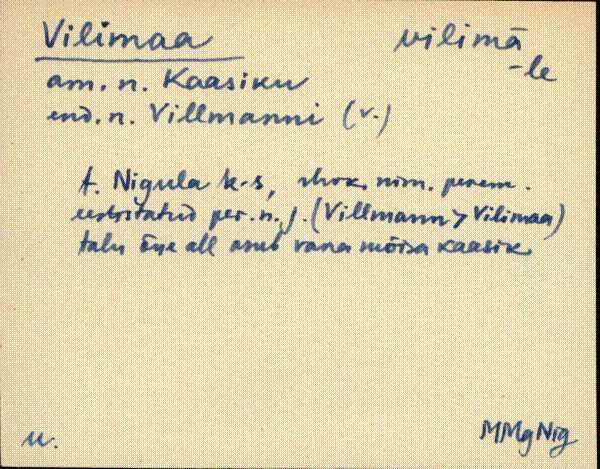 Vilimaa vilimā
-le
am. n. Kaasiku
end. n. Villmanni (v.)
t. Nigula k-s, nim. perem.
eestistatud per. n. j. (Villmann > Vilimaa)
talu õue all asub vana mõisa kaasik
u.
MMgNig